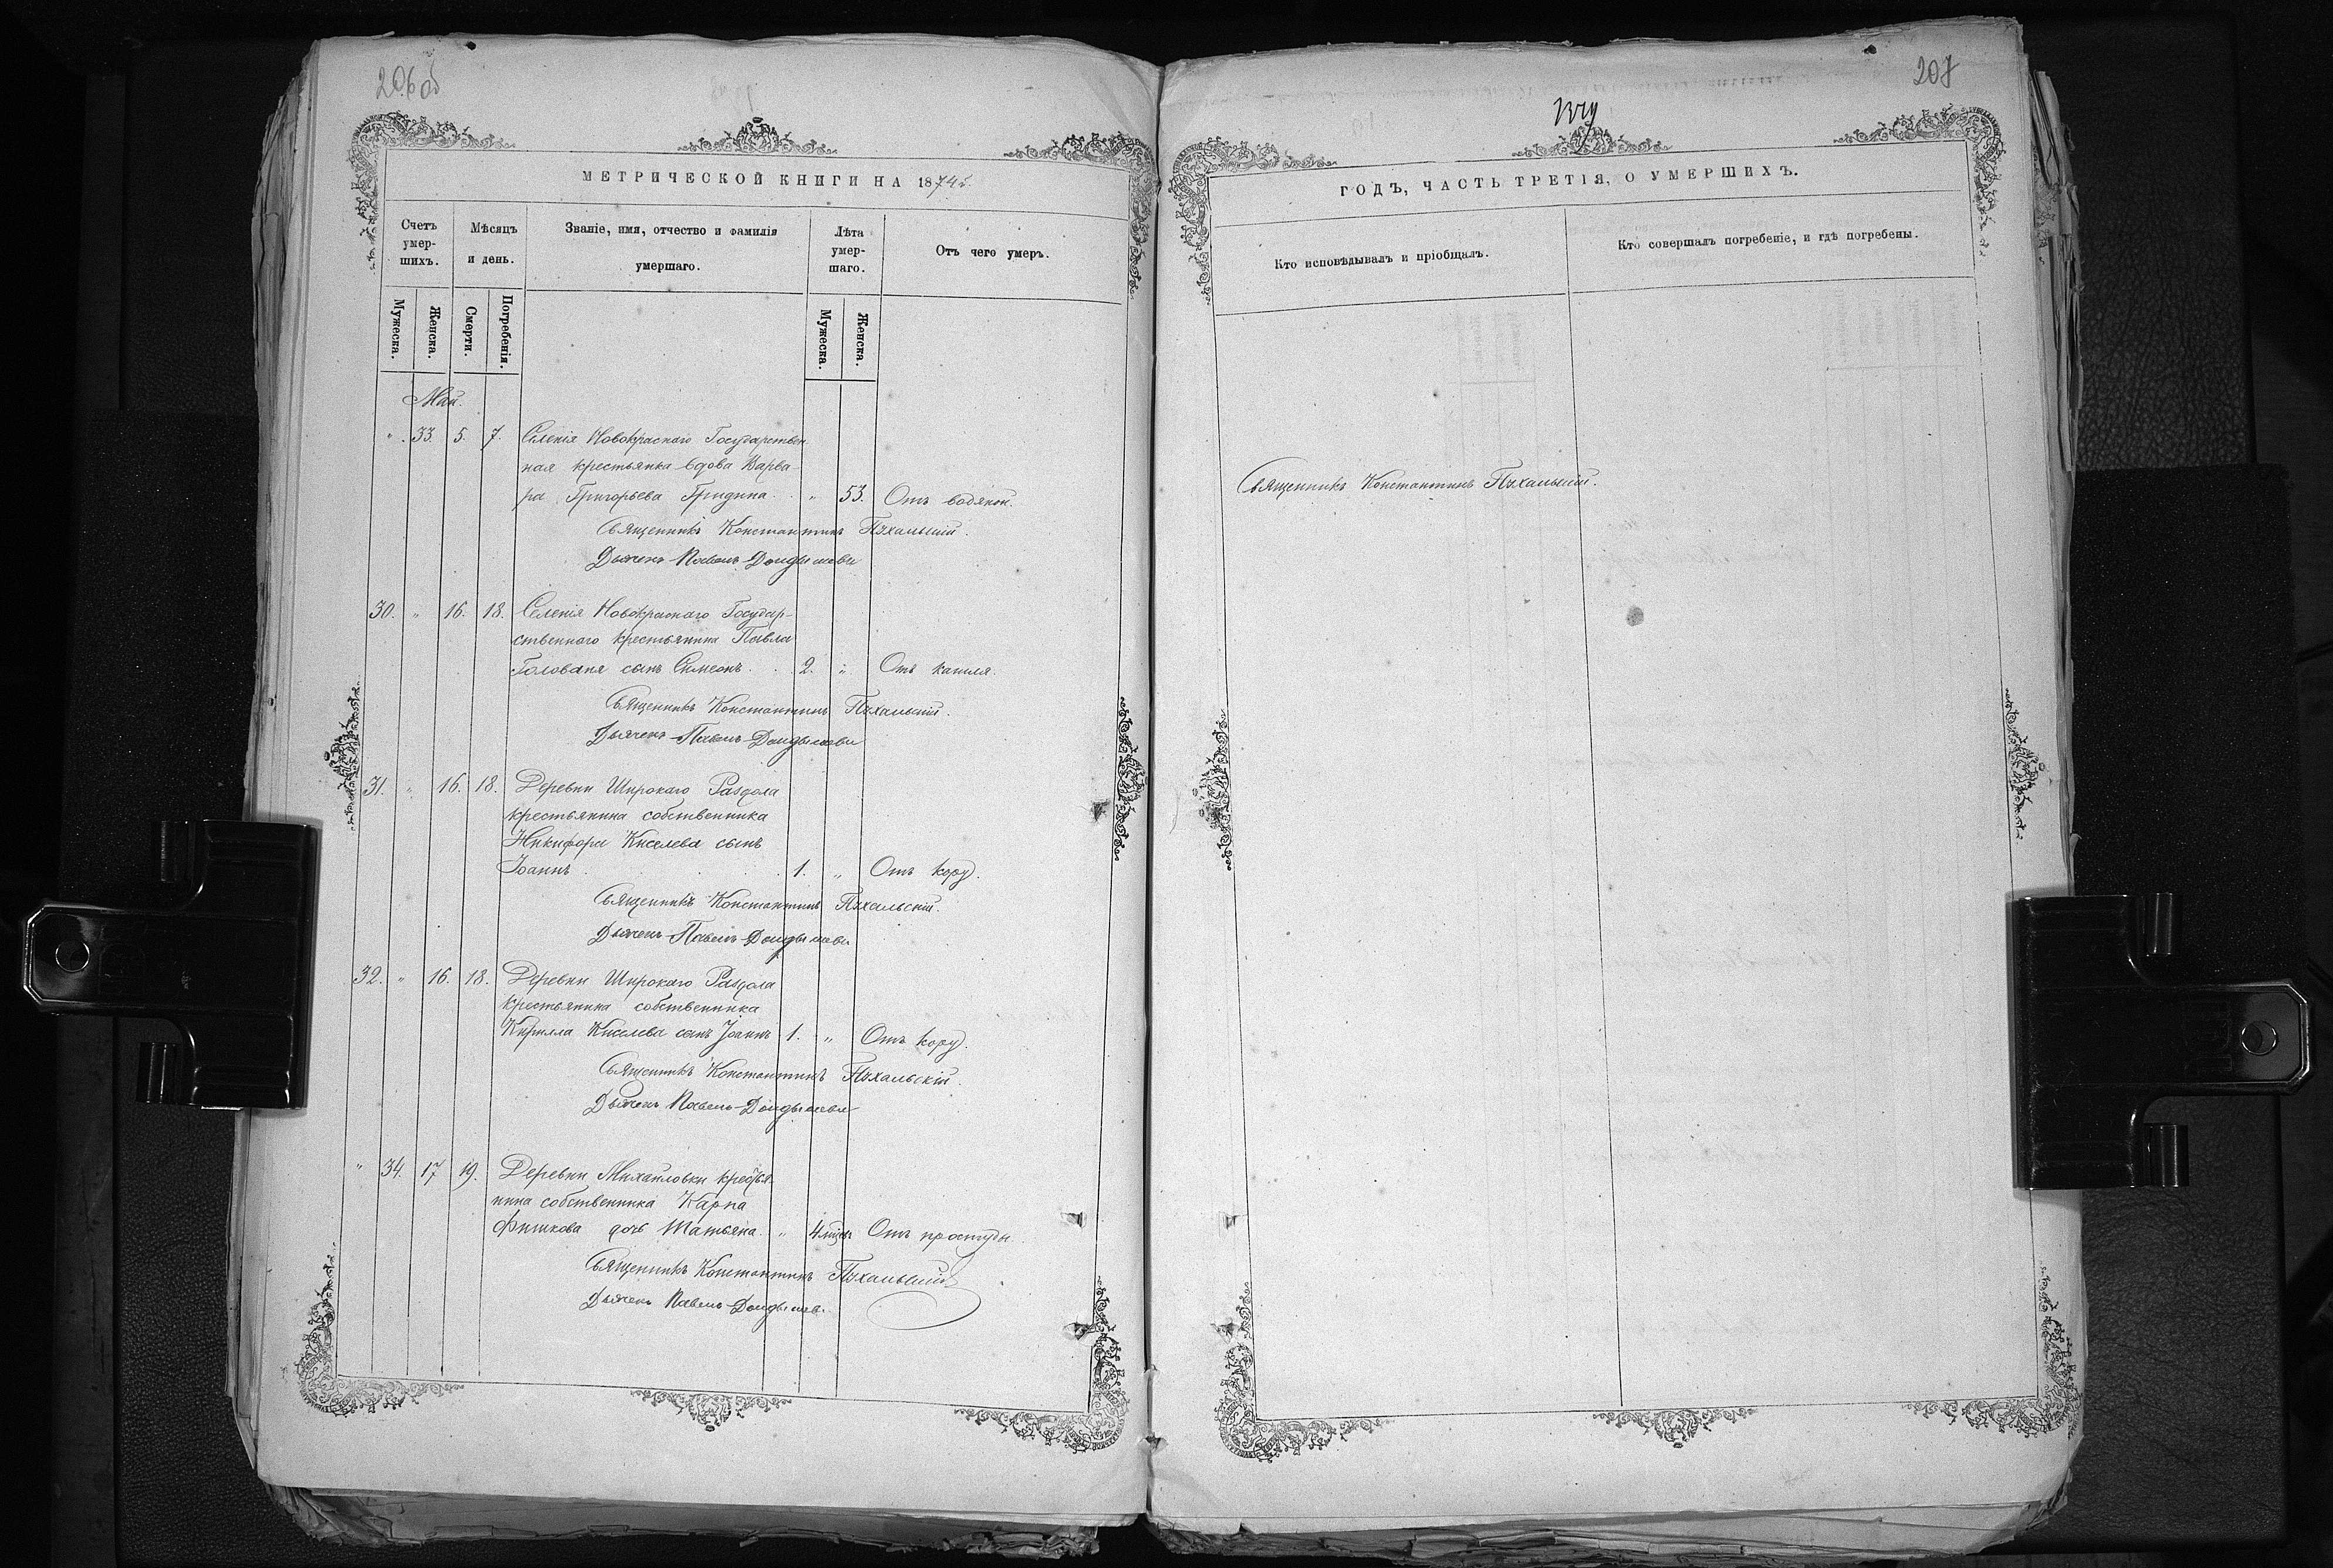 206об
МЕТРИЧЕСКОЙ КНИГИ НА 1874й.
Счетъ умер-шихъ.
Мѣсяцъ и день.
Званіе, имя, отчество и фамилія умершаго.
Лѣта умер-шаго.
Отъ чего умеръ.
Мужеска.
Женска.
Смерти.
Погребенія.
Мужеска.
Женска.
Май.
" 33. 5. 7. Селенія Новокраснаго Государствен
ная крестьянка вдова Варва-
ра Григорьева Гридина. " 53. Отъ водяной.
Священникъ Константинъ Пухальскій.
Дьячекъ Павелъ
30. " 16. 18. Селенія Новокраснаго Государ-
ственнаго крестьянина Павла
Голованя сынъ Симеонъ. 2. " Отъ кашля.
Священникъ Константинъ Пухальскій.
Дьячекъ Павелъ
31. " 16. 18. Деревни Широкаго Раздола
крестьянина собственника
Никифора Киселева сынъ
Іоаннъ 1. " Отъ кору.
Священникъ Константинъ Пухальскій.
Дьячекъ Павелъ
32. " 16. 18. Деревни Широкаго Раздола
крестьянина собственника
Кирилла Киселева сынъ Іоаннъ 1. " Отъ кору.
Священникъ Константинъ Пухальскій.
Дьячекъ Павелъ
" 34. 17 19. Деревни Михайловки крестья
нина собственника Карпа
Фишкова дочь Татьяна. " 4 мѣся Отъ простуды.
Священникъ Константинъ Пухальскій
Дьячекъ Павелъ
207
ГОДЪ, ЧАСТЬ ТРЕТІЯ, О УМЕРШИХЪ.
Кто исповѣдывалъ и пріобщалъ.
Кто совершалъ погребеніе, и гдѣ погребены.
Священникъ Константинъ Пухальскій.